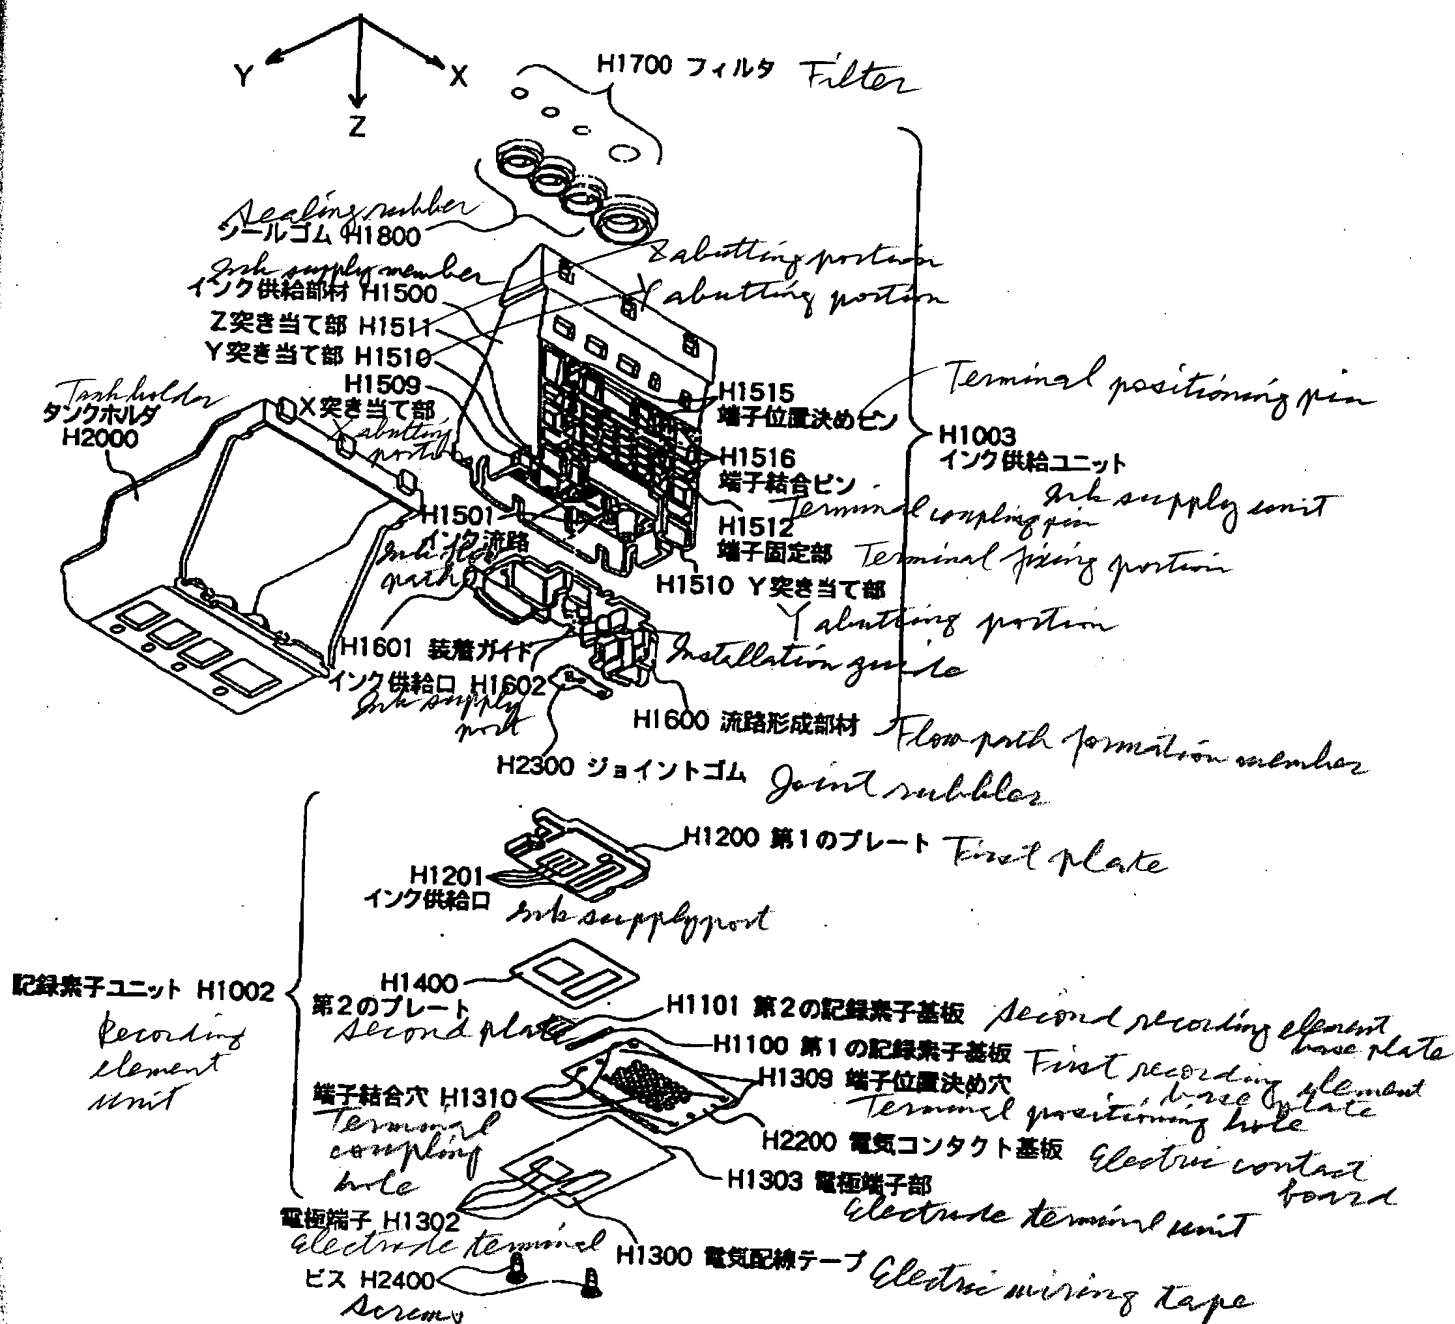 Y
X
Z
H1700 フィルタ Filter
Sealing rubber
シールゴム H1800
Ink supply member
インク供給部材 H1500
Z abutting portion
Y abutting portion
Z突き当て部 H1511
Y突き当て部 H1510
H1509
X突き当て部
X abutting
portion
Tank holder
タンクホルダ
H2000
H1515
端子位置決めピン
Terminal positioning pin
H1516
端子結合ピン
Terminal coupling pin
H1003
インク供給ユニット
Ink supply unit
H1512
端子固定部 Terminal fixing portion
H1501
インク流路
Ink flow
path
H1510 Y突き当て部
Y abutting portion
H1601 装着ガイド
Installation guide
インク供給口 H1602
Ink supply
port
H1600 流路形成部材
Flow path formation member
H2300 ジョイントゴム Joint rubber
H1200 第1のプレート First plate
H1201
インク供給口
Ink supply port
記録素子ユニット H1002
Recording
element
unit
H1400
第2のプレート
Second plate
H1101 第2の記録素子基板 Second recording element
base plate
H1100 第1の記録素子基板 First recording element
base plate
H1309 端子位置決め穴
Terminal positioning hole
端子結合穴 H1310
Terminal
coupling
hole
H2200 電気コンタクト基板 Electric contact
board
H1303 電極端子部
Electrode terminal unit
電極端子 H1302
Electrode terminal
H1300 電気配線テープ Electric wiring tape
ビス H2400
Screws